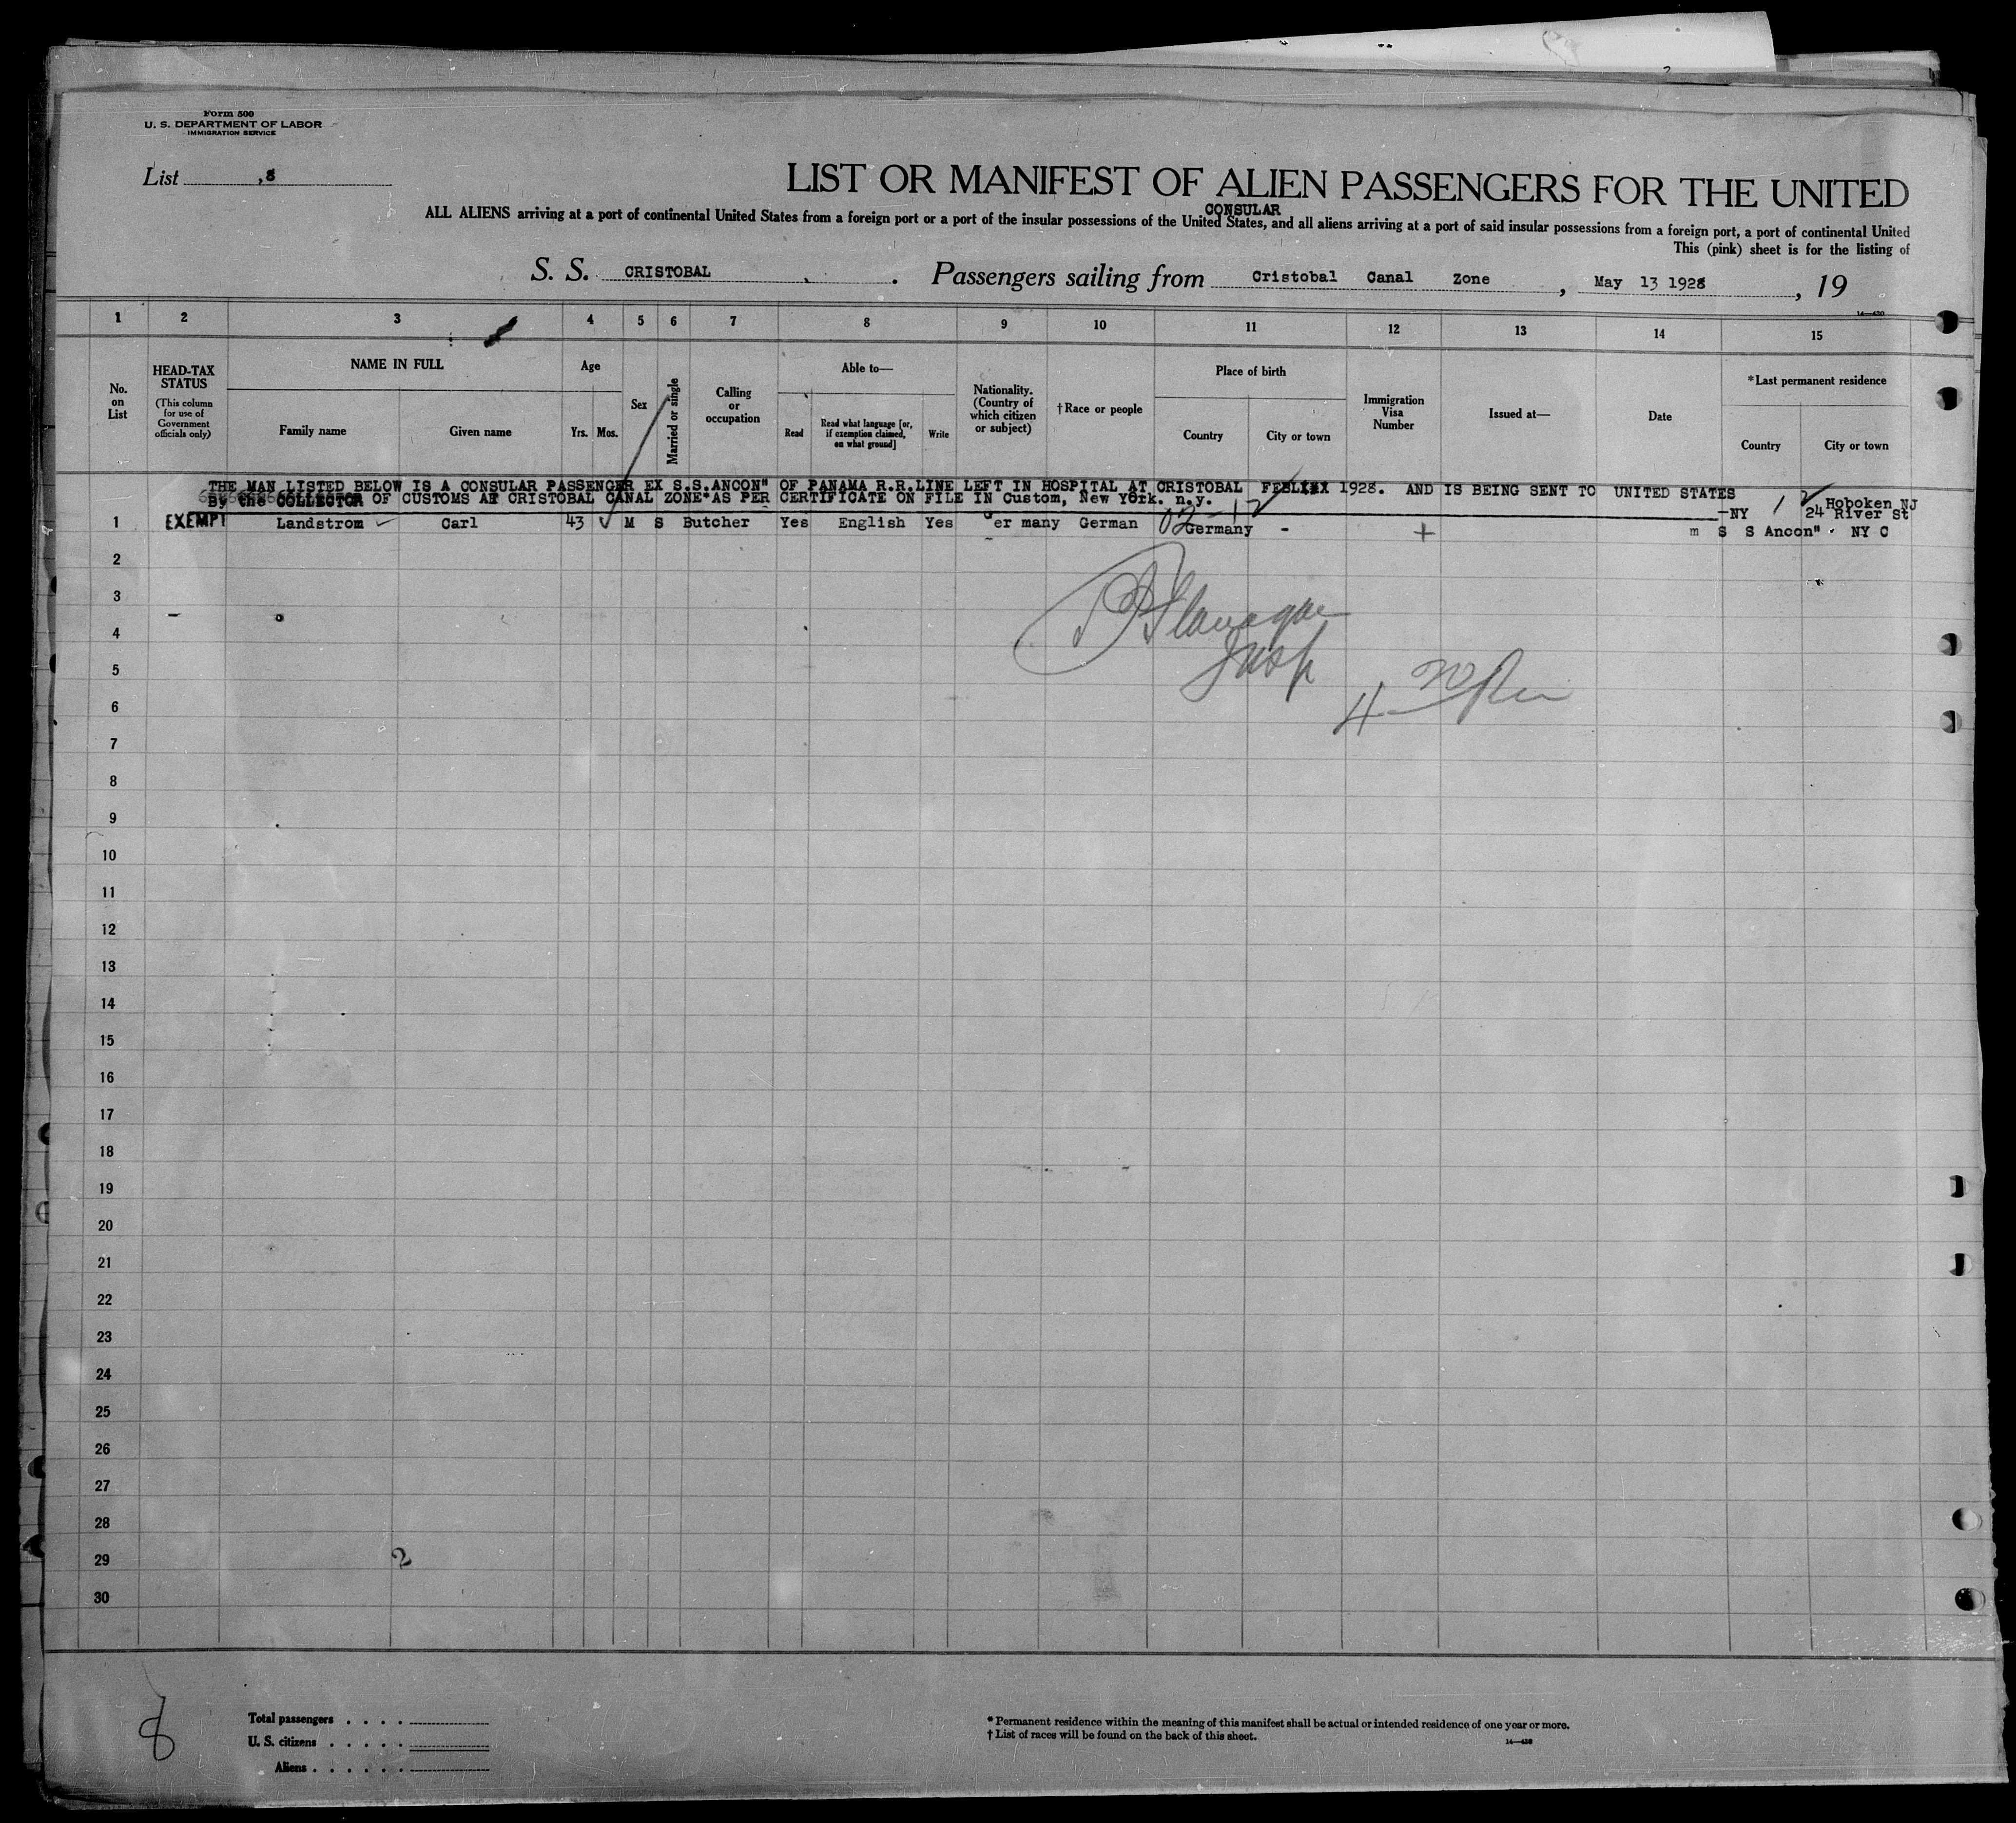 Form 500
U. S. DEPARTMENT OF LABOR
IMMIGRATION SERVICE
List ,8
LIST OR MANIFEST OF ALIEN PASSENGERS FOR THE UNITED
CONSULAR
ALL ALIENS arriving at a port of continental United States from a foreign port or a port of the insular possessions of the United States, and all aliens arriving at a port of said insular possessions from a foreign port, a port of continental United
This (pink) sheet is for the listing of
S. S. CRISTOBAL . Passengers sailing from Cristobal Canal Zone , May 13 1928 , 19
14—430
1 2 3 4 5 6 7 8 9 10 11 12 13 14 15
No. on List
HEAD-TAX STATUS
(This column for use of Government officials only)
NAME IN FULL
Family name Given name
Age
Yrs. Mos.
Sex
Married or single
Calling or occupation
Able to—
Read
Read what language [or, if exemption claimed, on what ground]
Write
Nationality. (Country of which citizen or subject)
†Race or people
Place of birth
Country City or town
Immigration Visa Number
Issued at—
Date
*Last permanent residence
Country City or town
THE MAN LISTED BELOW IS A CONSULAR PASSENGER EX S.S.ANCON" OF PANAMA R.R.LINE LEFT IN HOSPITAL AT CRISTOBAL 1928. AND IS BEING SENT TO UNITED STATES
By the COLLECTOR OF CUSTOMS AT CRISTOBAL CANAL ZONE AS PER CERTIFICATE ON FILE IN Custom, New York. n.y.
1 2 Hoboken NJ
NY 24 River St
1 EXEMPT Landstrom Carl 43 M S Butcher Yes English Yes Ger many German Germany -
m S S Ancon" NY C
2
3
4
5
6
7
8
9
10
11
12
13
14
15
16
17
18
19
20
21
22
23
24
25
26
27
28
29
30
Flanagan
Insp
2
8
Total passengers . . . .
U. S. citizens . . . . .
Aliens . . . . . .
* Permanent residence within the meaning of this manifest shall be actual or intended residence of one year or more.
† List of races will be found on the back of this sheet.
14—430